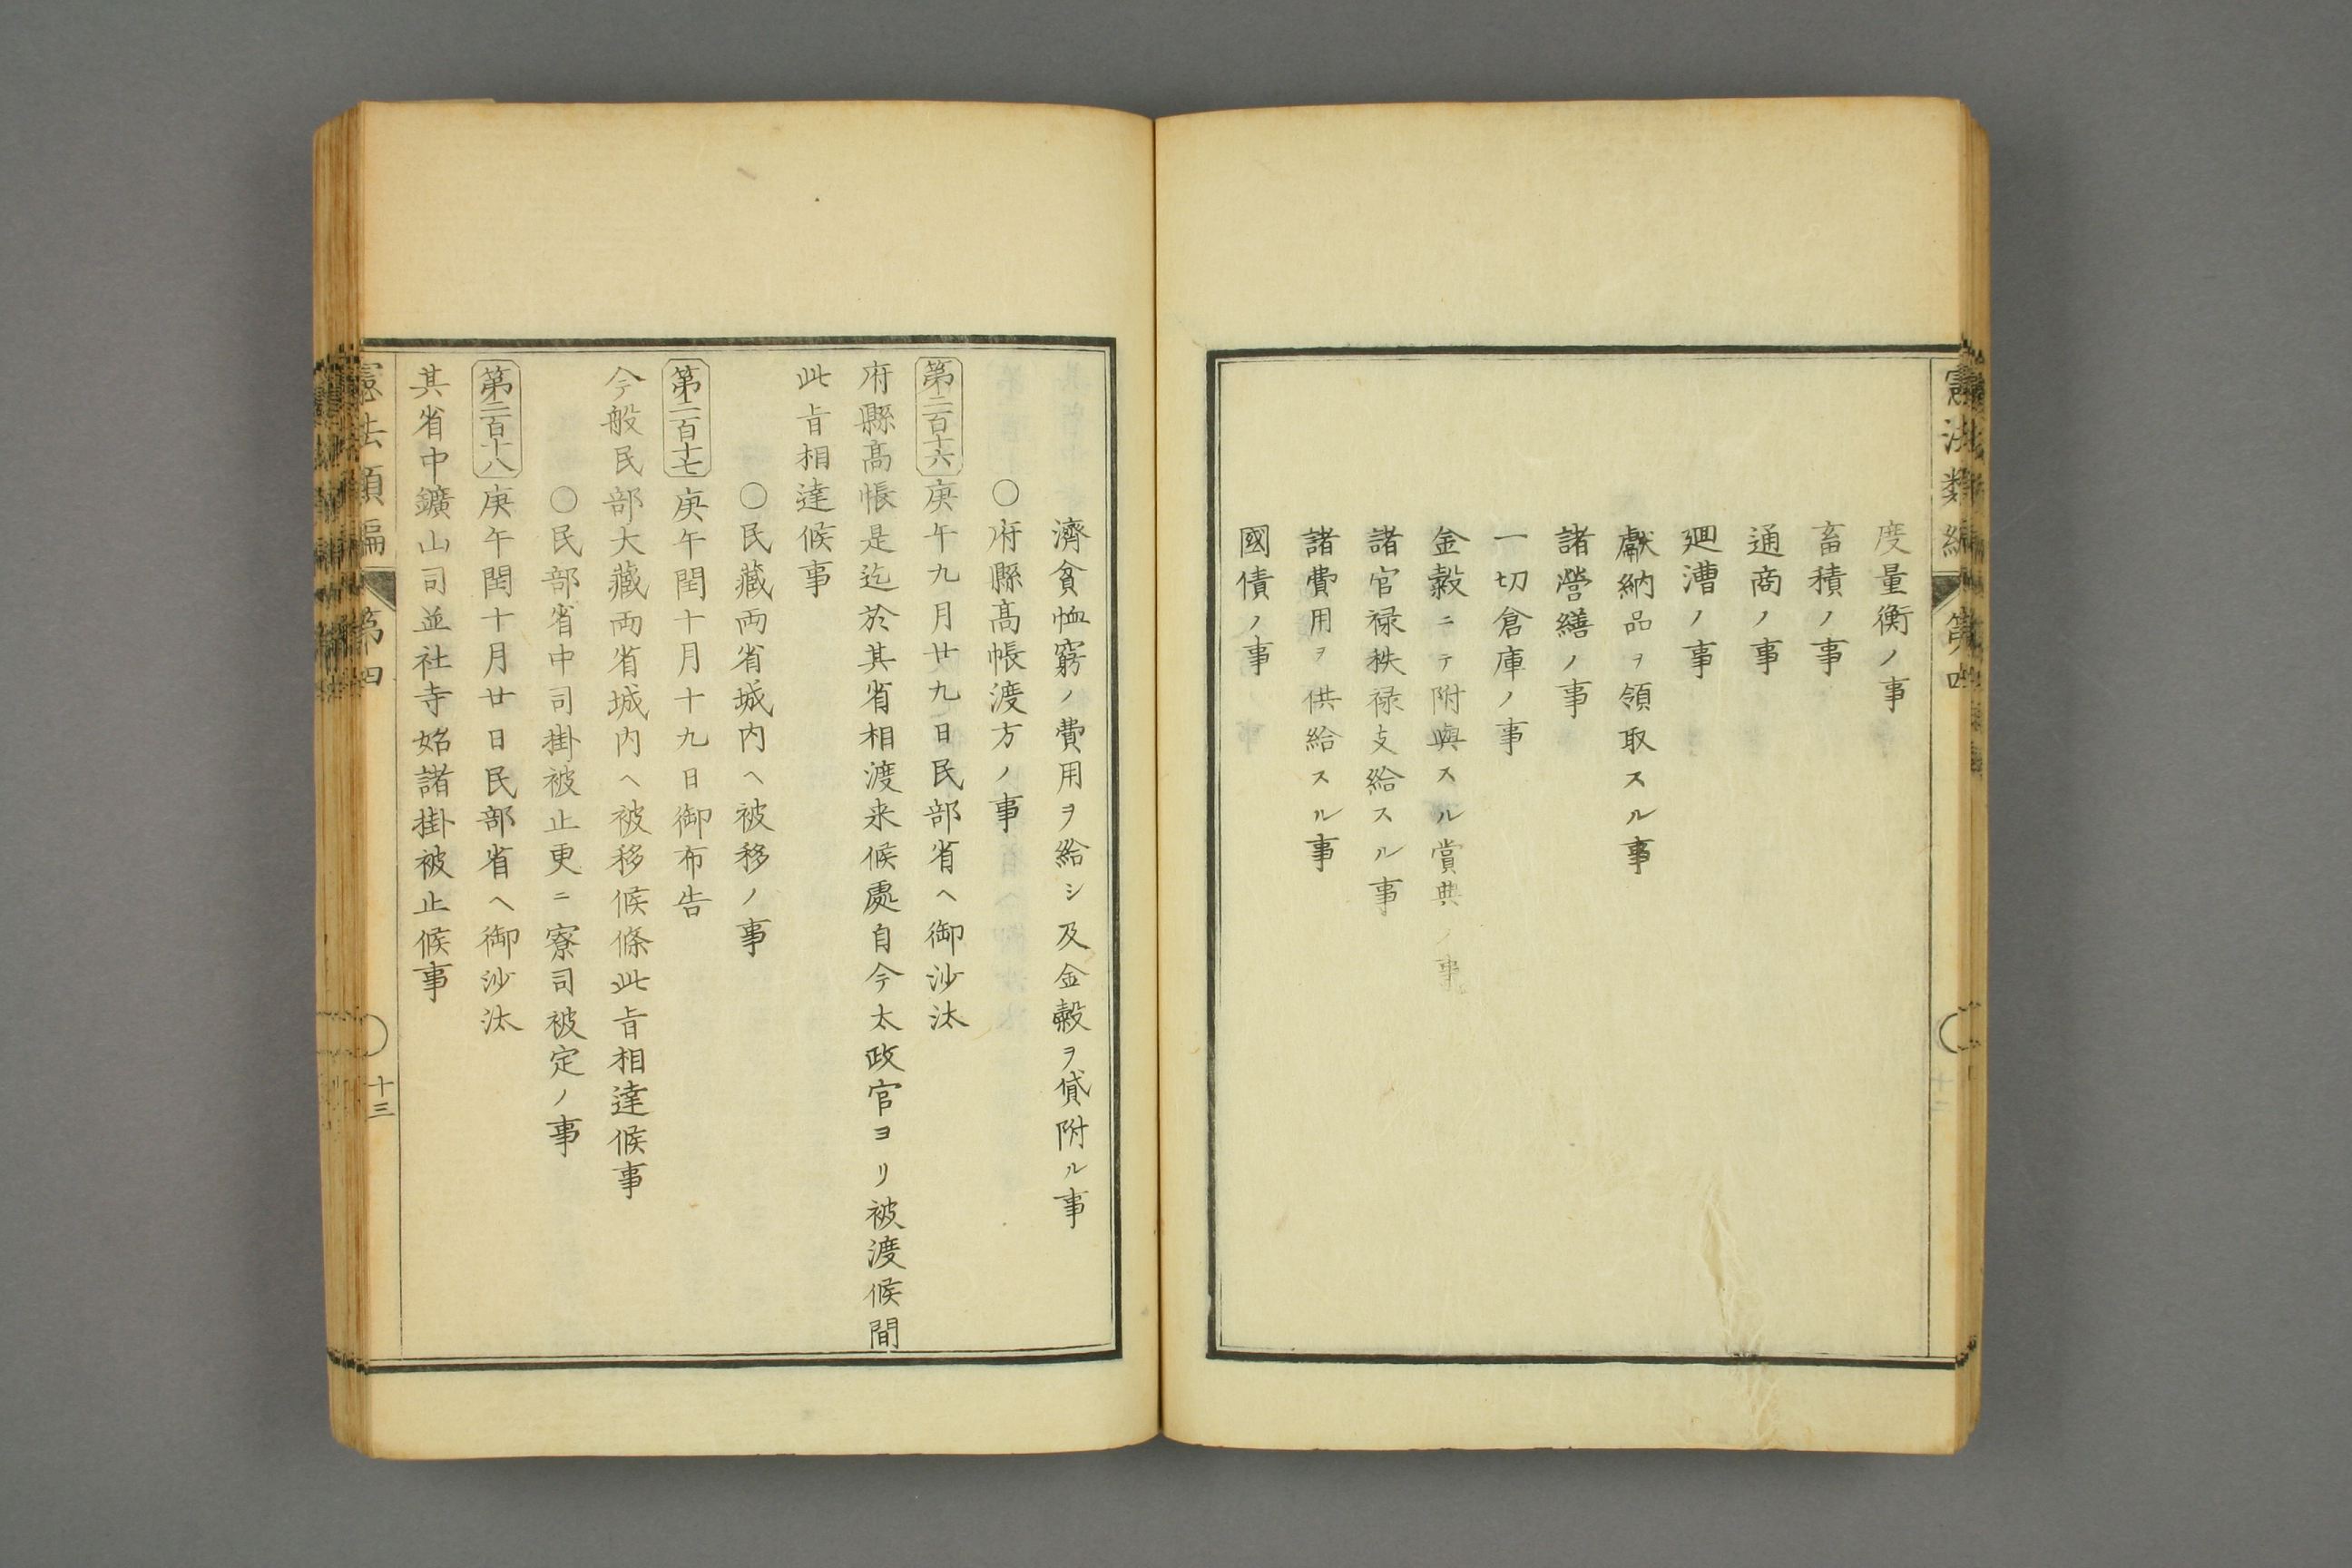 憲法類編 第四
度量衡ノ事
畜積ノ事
通商ノ事
廻漕ノ事
獻納品ヲ領取スル事
諸營繕ノ事
一切倉庫ノ事
金穀ニテ附與スル賞典ノ事
諸官禄秩禄支給スル事
諸費用ヲ供給スル事
國債ノ事
濟貧恤窮ノ費用ヲ給シ及金穀ヲ貸附ル事
〇府縣髙帳渡方ノ事
第二百十六 庚午九月廿九日民部省ヘ御沙汰
府縣髙帳是迄於其省相渡来候處自今太政官ヨリ被渡候間
此旨相達候事
〇民藏両省城内ヘ被移ノ事
第二百十七 庚午閏十月十九日御布告
今般民部大藏両省城内ヘ被移候條此旨相達候事
〇民部省中司掛被止更ニ寮司被定ノ事
第二百十八 庚午閏十月廿日民部省ヘ御沙汰
其省中鑛山司並社寺始諸掛被止候事
憲法類編 第四
十三